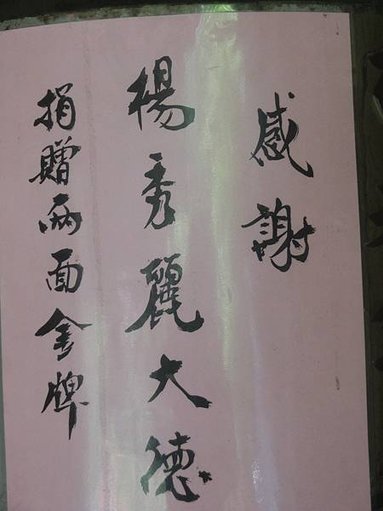 感謝
楊秀麗大德
捐贈兩面金牌